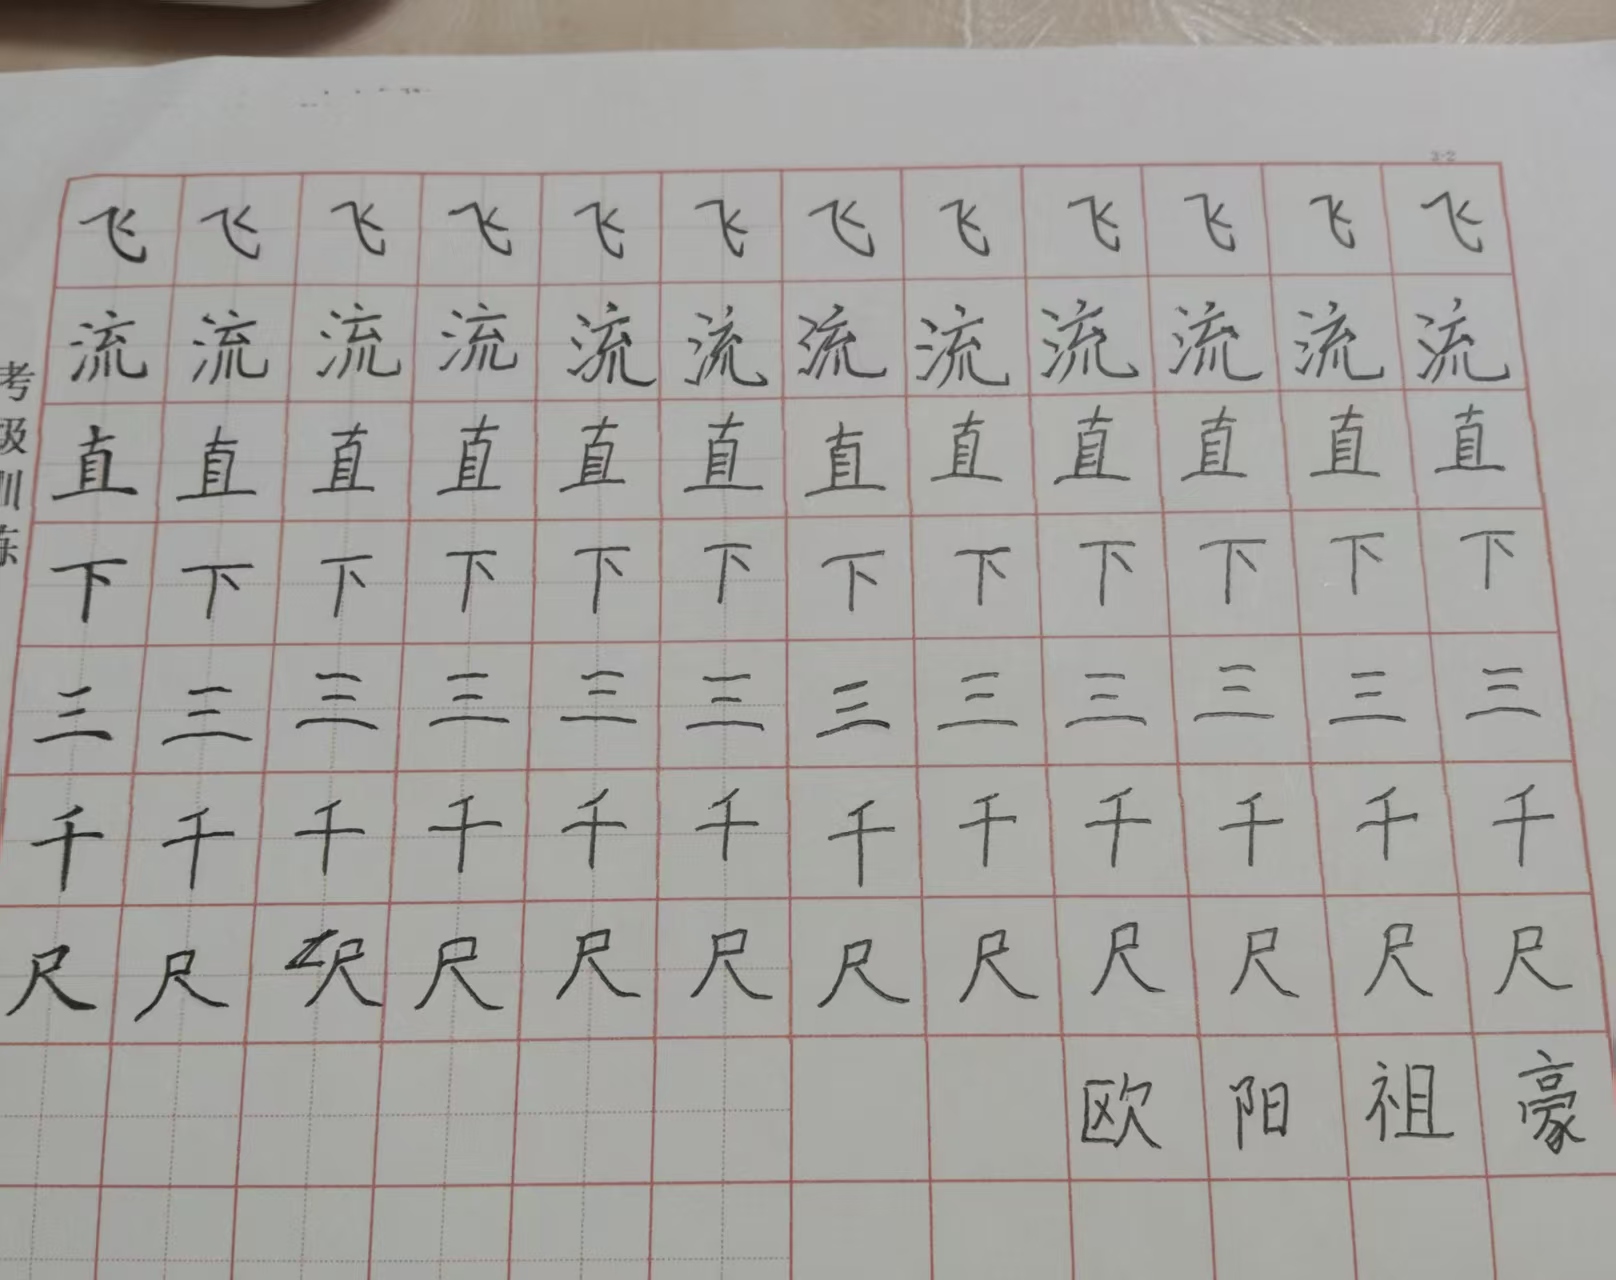 3-2
飞飞飞飞飞飞飞飞飞飞飞飞
流流流流流流流流流流流流
直直直直直直直直直直直直
下下下下下下下下下下下下
三三三三三三三三三三三三
千千千千千千千千千千千千
尺尺尺尺尺尺尺尺尺尺尺尺
欧阳祖豪
考级训练